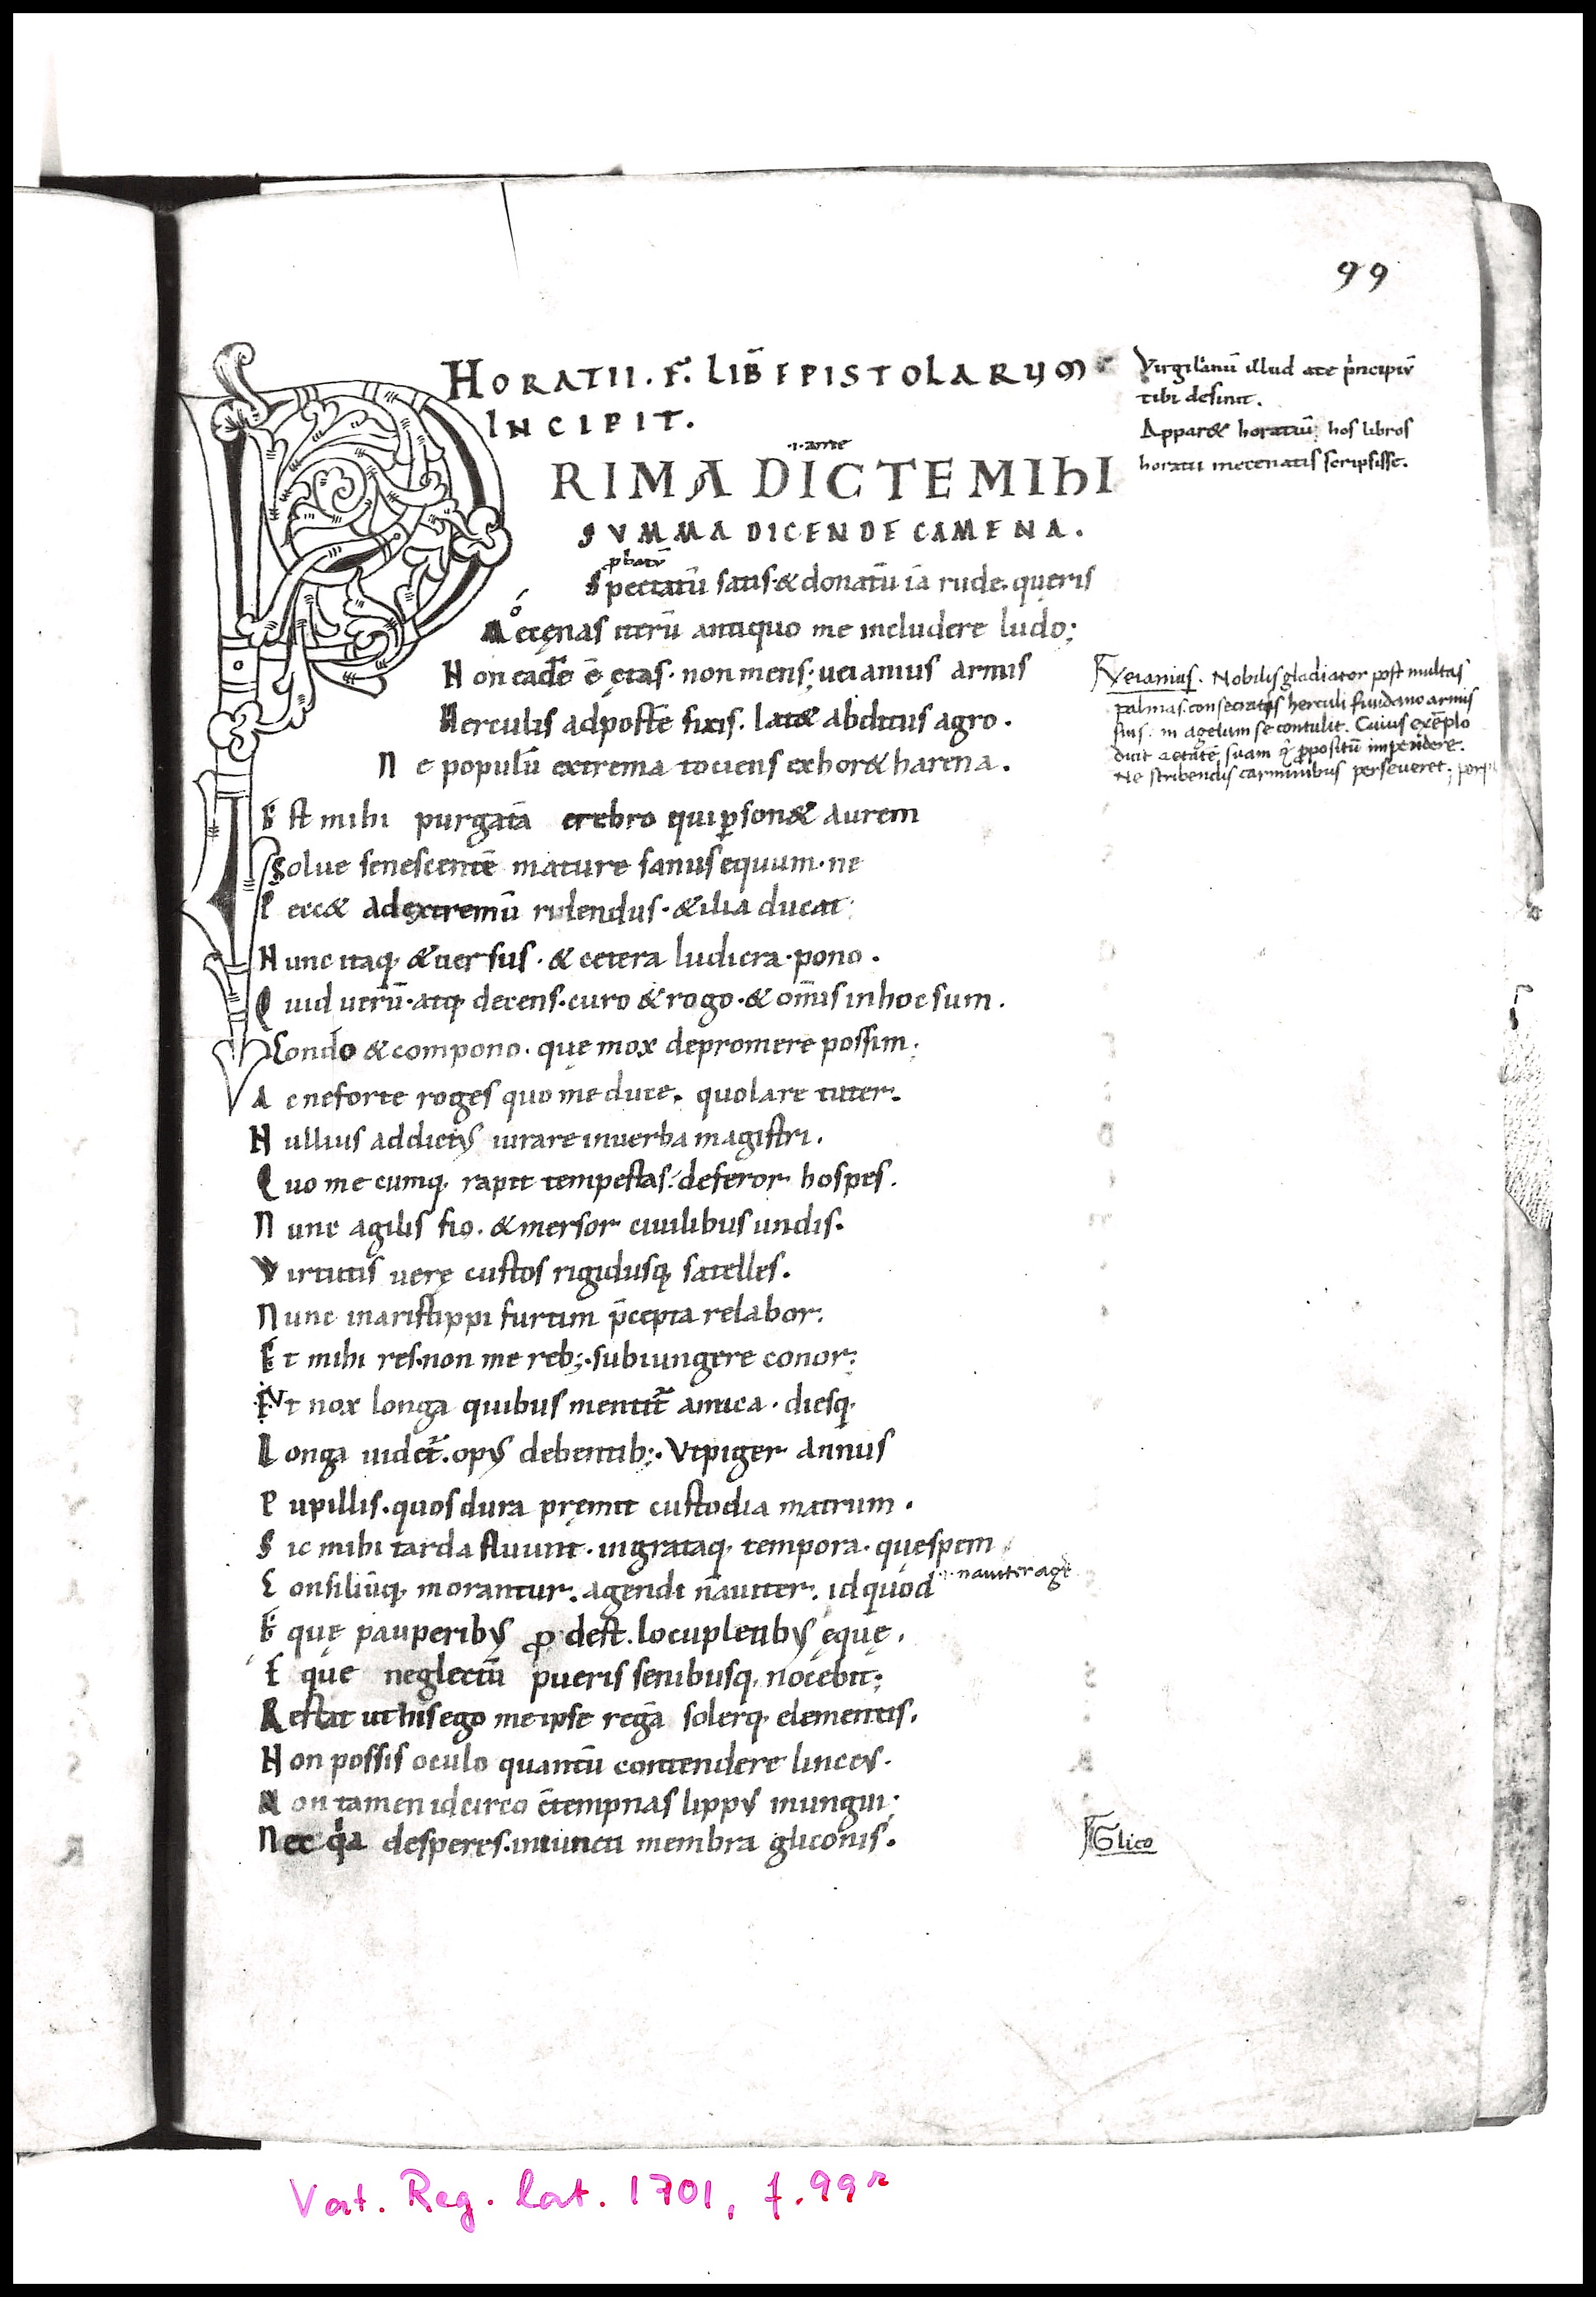 99
HORATII. F. LIB̅ EPISTOLARUM
INCIPIT.
.i. ante
PRIMA DICTE MIhI
SVMMA DICENDE CAMENA.
pbatū
Spectatū satis·& donatū iā rude. queris
Mecęnas iterū antiquo me includere ludo;
Non eadē ē ętas· non mens; ueianius armis
Herculis ad postē fixis. lat& abditus agro.
Ne populū extrema tociens exhor& harena.
Est mihi purgatā crebro qui pson& aurem
Solue senescentē mature sanus equum· ne
Pecc& ad extremū ridendus·& ilia ducat;
Nunc itaq; & uersus· & cetera ludicra· pono.
Quid uerū· atq; decens· curo & rogo· & om̄is in hoc sum.
Condo & compono· que mox depromere possim;
Ac ne forte roges quo me duce. quo lare tuter.
Nullius addictus iurare in uerba magistri.
Quo me cumq; rapit tempestas. deferor hospes.
Nunc agilis fio. & mersor ciuilibus undis.
Virtutis uerę custos rigidusq; satelles.
Nunc in aristippi furtim p̄cepta relabor;
Et mihi res· non me reb;· subiungere conor;
Vt nox longa quibus mentit̄ amica· diesq;
Longa uidet̄. opus debentib;. Vt piger annus
Pupillis. quos dura pręmit custodia matrum.
Sic mihi tarda fluunt· ingrataq; tempora· quę spem
Consiliūq; morantur. agendi nauiter. id quod
.i. nauiter age
Equę pauperibus p dest. locupletibus ęquę.
Eque neglectū pueris senibusq; nocebit;
Restat ut his ego me ipse regā solerq; elementis.
Non possis oculo quantū contendere linceus.
Non tamen idcirco c̄tempnas lippus inungui;
Nec qia desperes. inuincti membra gliconis.
Virgilianū illud a te principiū
tibi desinit.
Appar& horatiū hos libros
horatu mecenatis scripsisse.
Veianius. Nobilis gladiator post multas
palmas. consecratis herculi fundano armis
suis. in agelum se contulit. Cuius exēplo
dicit aetatē suam q ppositū impendere.
Ne scribendis carminibus perseueret;
Glico
Vat. Reg. lat. 1701, f. 99r